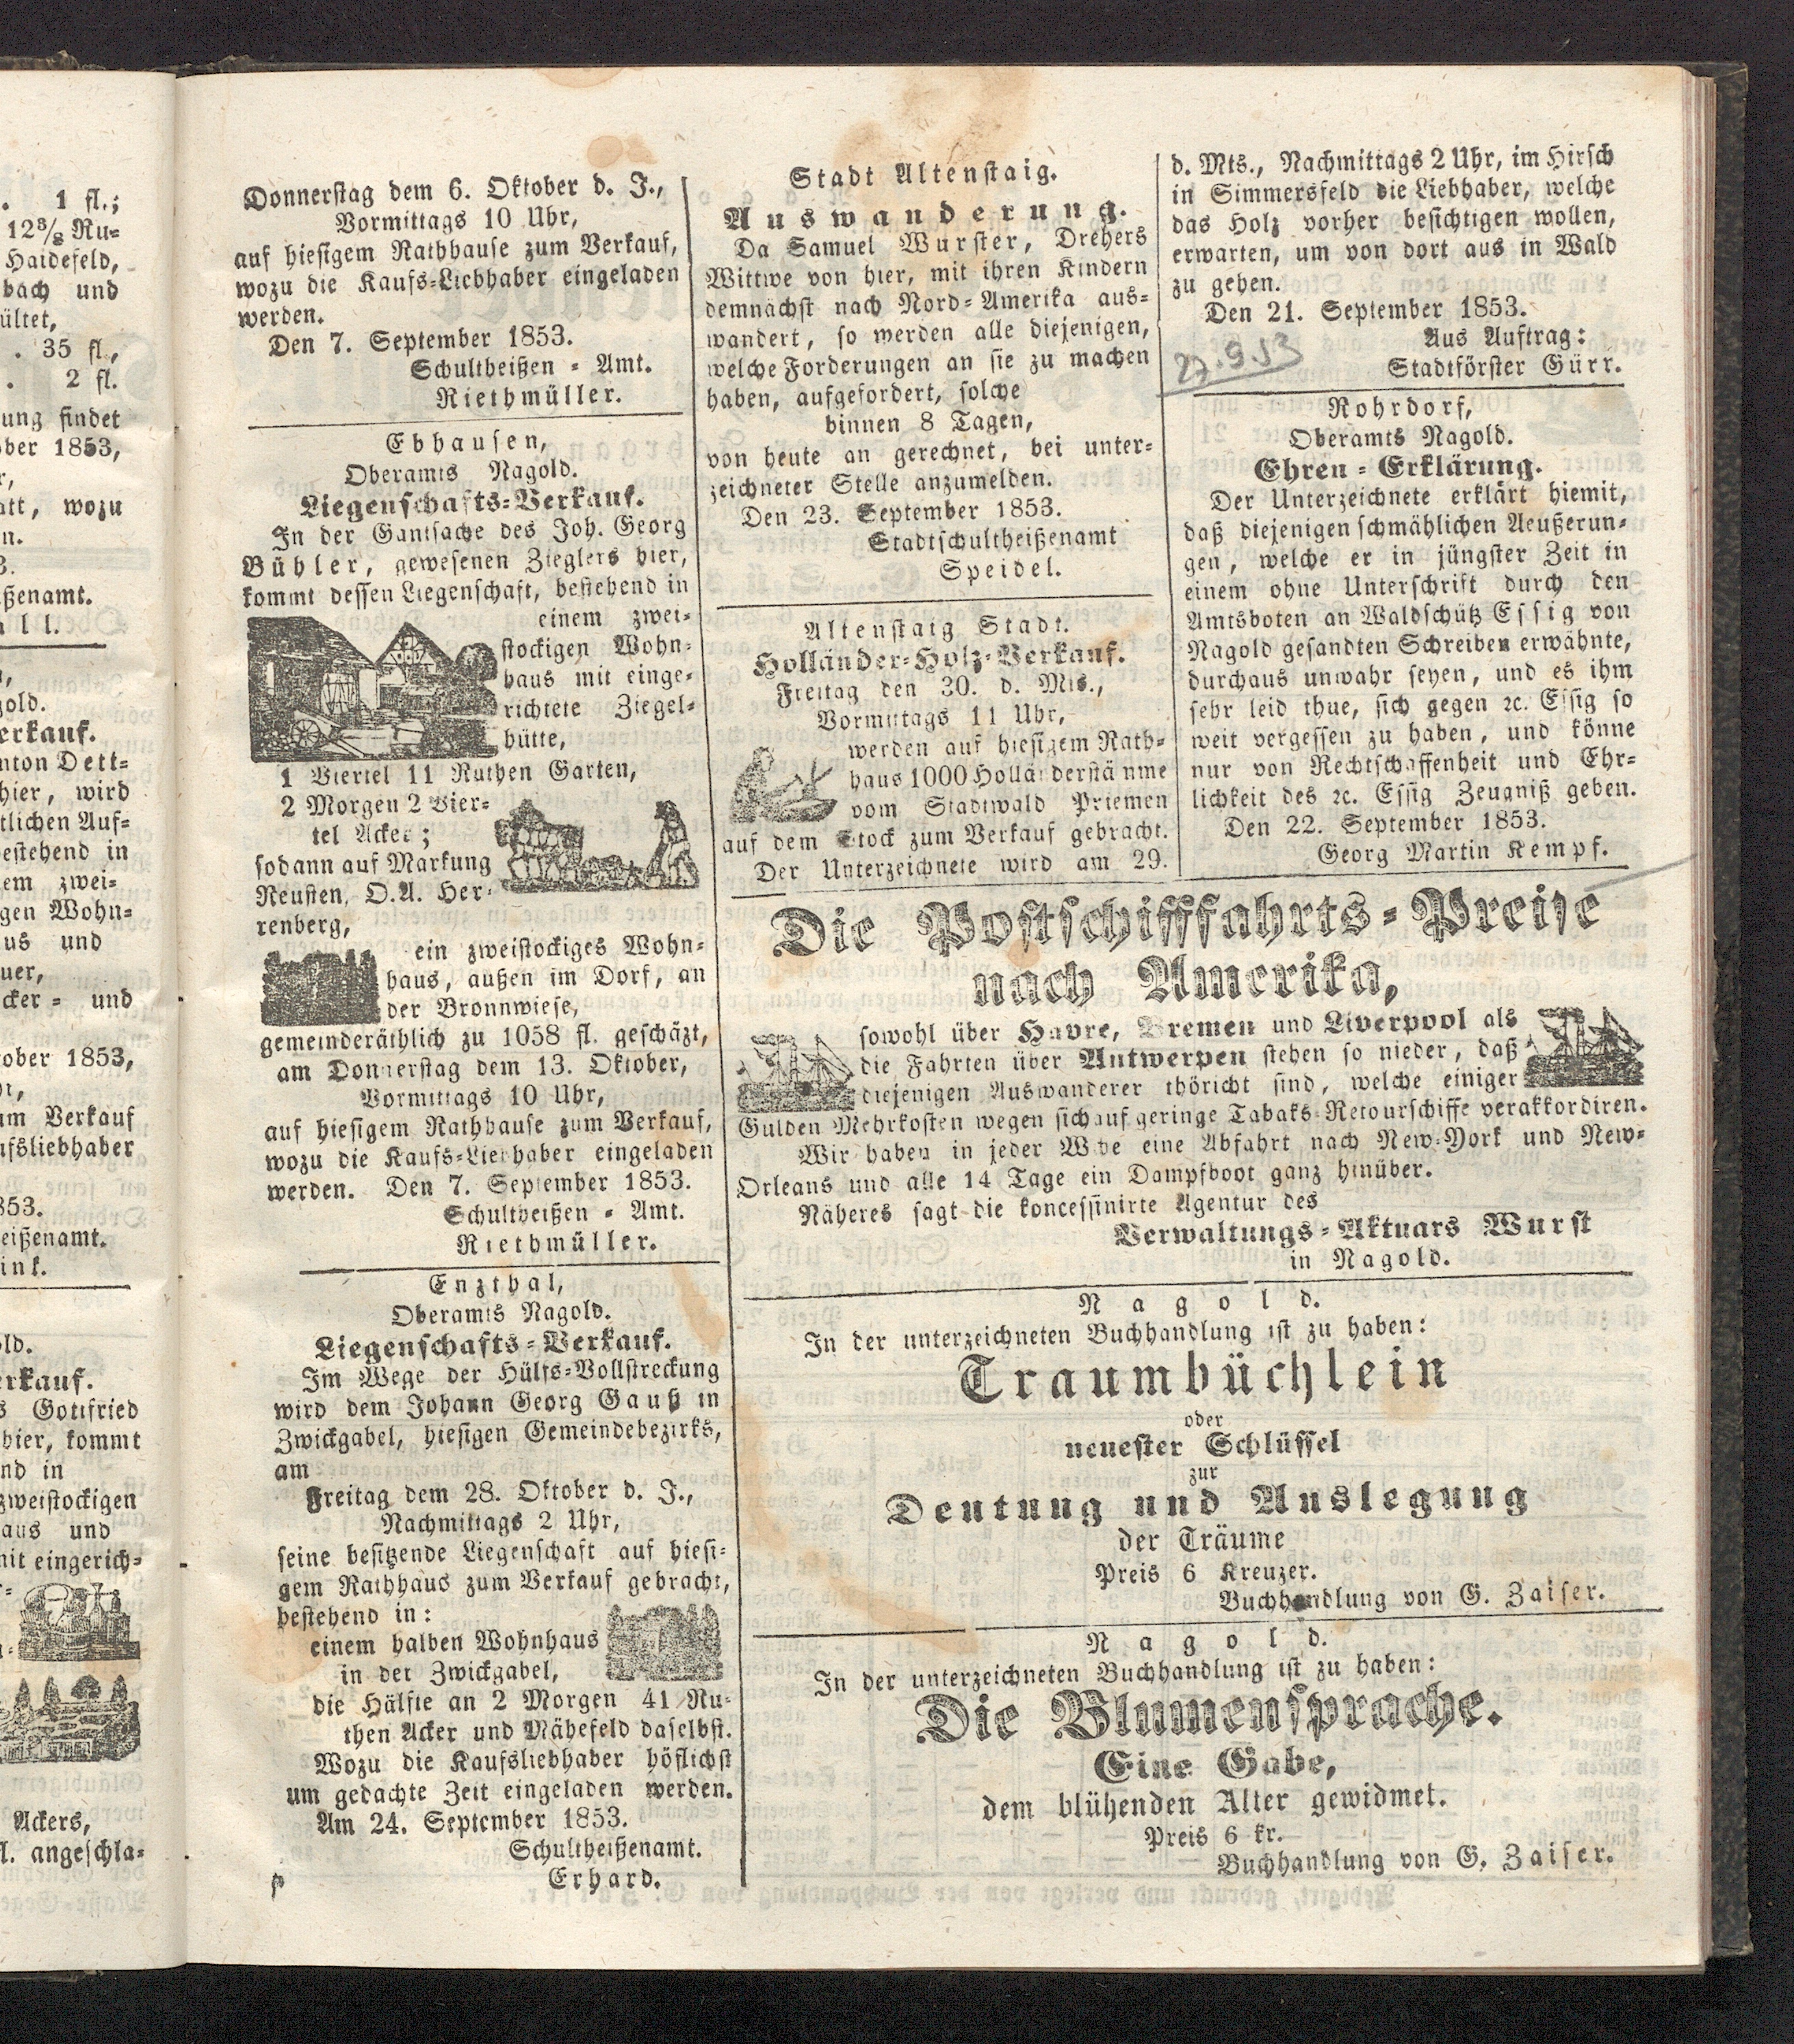 . 1 fl.;
12 3/8 Ru-
Haidefeld,
bach und
ültet,
. 35 fl.,
. 2 fl.
ung findet
ober 1853,
r,
att, wozu
n.
3.
ßenamt.
all.
gold.
erkauf.
nton Dett-
hier, wird
tlichen Auf-
bestehend in
em zwei-
gen Wohn-
us und
uer,
cker- und
ober 1853,
um Verkauf
ufsliebhaber
853.
eißenamt.
ink.
old.
erkauf.
s Gottfried
hier, kommt
nd in
zweistockigen
aus und
mit eingerich-
Ackers,
l. angeschla-
Donnerstag dem 6. Oktober d. J.,
Vormittags 10 Uhr,
auf hiesigem Rathhause zum Verkauf,
wozu die Kaufs-Liebhaber eingeladen
werden.
Den 7. September 1853.
Schultheißen-Amt.
Riethmüller.
Ebhausen,
Oberamts Nagold.
Liegenschafts-Verkauf.
In der Gantsache des Joh. Georg
Bühler, gewesenen Zieglers hier,
kommt dessen Liegenschaft, bestehend in
einem zwei-
stockigen Wohn-
haus mit einge-
richtete Ziegel-
hütte,
1 Viertel 11 Ruthen Garten,
2 Morgen 2 Vier-
tel Acker;
sodann auf Markung
Neusten, O.A. Her-
renberg,
ein zweistockiges Wohn-
haus, außen im Dorf, an
der Bronnwiese,
gemeinderäthlich zu 1058 fl. geschäzt,
am Donnerstag dem 13. Oktober,
Vormittags 10 Uhr,
auf hiesigem Rathhause zum Verkauf,
wozu die Kaufs-Liebhaber eingeladen
werden. Den 7. September 1853.
Schultheißen-Amt.
Riethmüller.
Enzthal,
Oberamts Nagold.
Liegenschafts-Verkauf.
Im Wege der Hülfs-Vollstreckung
wird dem Johann Georg Gauß in
Zwickgabel, hiesigen Gemeindebezirks,
am
Freitag dem 28. Oktober d. J.,
Nachmittags 2 Uhr,
seine besitzende Liegenschaft auf hiesi-
gem Rathhaus zum Verkauf gebracht,
bestehend in:
einem halben Wohnhaus
in der Zwickgabel,
die Hälfte an 2 Morgen 41 Ru-
then Acker und Mähefeld daselbst.
Wozu die Kaufsliebhaber höflichst
um gedachte Zeit eingeladen werden.
Am 24. September 1853.
Schultheißenamt.
Erhard.
Stadt Altenstaig.
Auswanderung.
Da Samuel Wurster, Drehers
Wittwe von hier, mit ihren Kindern
demnächst nach Nord-Amerika aus-
wandert, so werden alle diejenigen,
welche Forderungen an sie zu machen
haben, aufgefordert, solche
binnen 8 Tagen,
von heute an gerechnet, bei unter-
zeichneter Stelle anzumelden.
Den 23. September 1853.
Stadtschultheißenamt
Speidel.
Altenstaig Stadt.
Holländer-Holz-Verkauf.
Freitag den 30. d. Mts.,
Vormittags 11 Uhr,
werden auf hiesigem Rath-
haus 1000 Holländerstämme
vom Stadtwald Priemen
auf dem Stock zum Verkauf gebracht.
Der Unterzeichnete wird am 29.
d. Mts., Nachmittags 2 Uhr, im Hirsch
in Simmersfeld die Liebhaber, welche
das Holz vorher besichtigen wollen,
erwarten, um von dort aus in Wald
zu gehen.
Den 21. September 1853.
Aus Auftrag:
27.9.53
Stadtförster Gürr.
Rohrdorf,
Oberamts Nagold.
Ehren-Erklärung.
Der Unterzeichnete erklärt hiemit,
daß diejenigen schmählichen Aeußerun-
gen, welche er in jüngster Zeit in
einem ohne Unterschrift durch den
Amtsboten an Waldschütz Essig von
Nagold gesandten Schreiben erwähnte,
durchaus unwahr seyen, und es ihm
sehr leid thue, sich gegen ꝛc. Essig so
weit vergessen zu haben, und könne
nur von Rechtschaffenheit und Ehr-
lichkeit des ꝛc. Essig Zeugniß geben.
Den 22. September 1853.
Georg Martin Kempf.
Die Postschifffahrts-Preise
nach Amerika,
sowohl über Havre, Bremen und Liverpool als
die Fahrten über Antwerpen stehen so nieder, daß
diejenigen Auswanderer thöricht sind, welche einiger
Gulden Mehrkosten wegen sich auf geringe Tabaks-Retourschiffe verakkordiren.
Wir haben in jeder Woche eine Abfahrt nach New-York und New-
Orleans und alle 14 Tage ein Dampfboot ganz hinüber.
Näheres sagt die koncessinirte Agentur des
Verwaltungs-Aktuars Wurst
in Nagold.
Nagold.
In der unterzeichneten Buchhandlung ist zu haben:
Traumbüchlein
oder
neuester Schlüssel
zur
Deutung und Auslegung
der Träume
Preis 6 Kreuzer.
Buchhandlung von G. Zaiser.
Nagold.
In der unterzeichneten Buchhandlung ist zu haben:
Die Blumensprache.
Eine Gabe,
dem blühenden Alter gewidmet.
Preis 6 kr.
Buchhandlung von G. Zaiser.